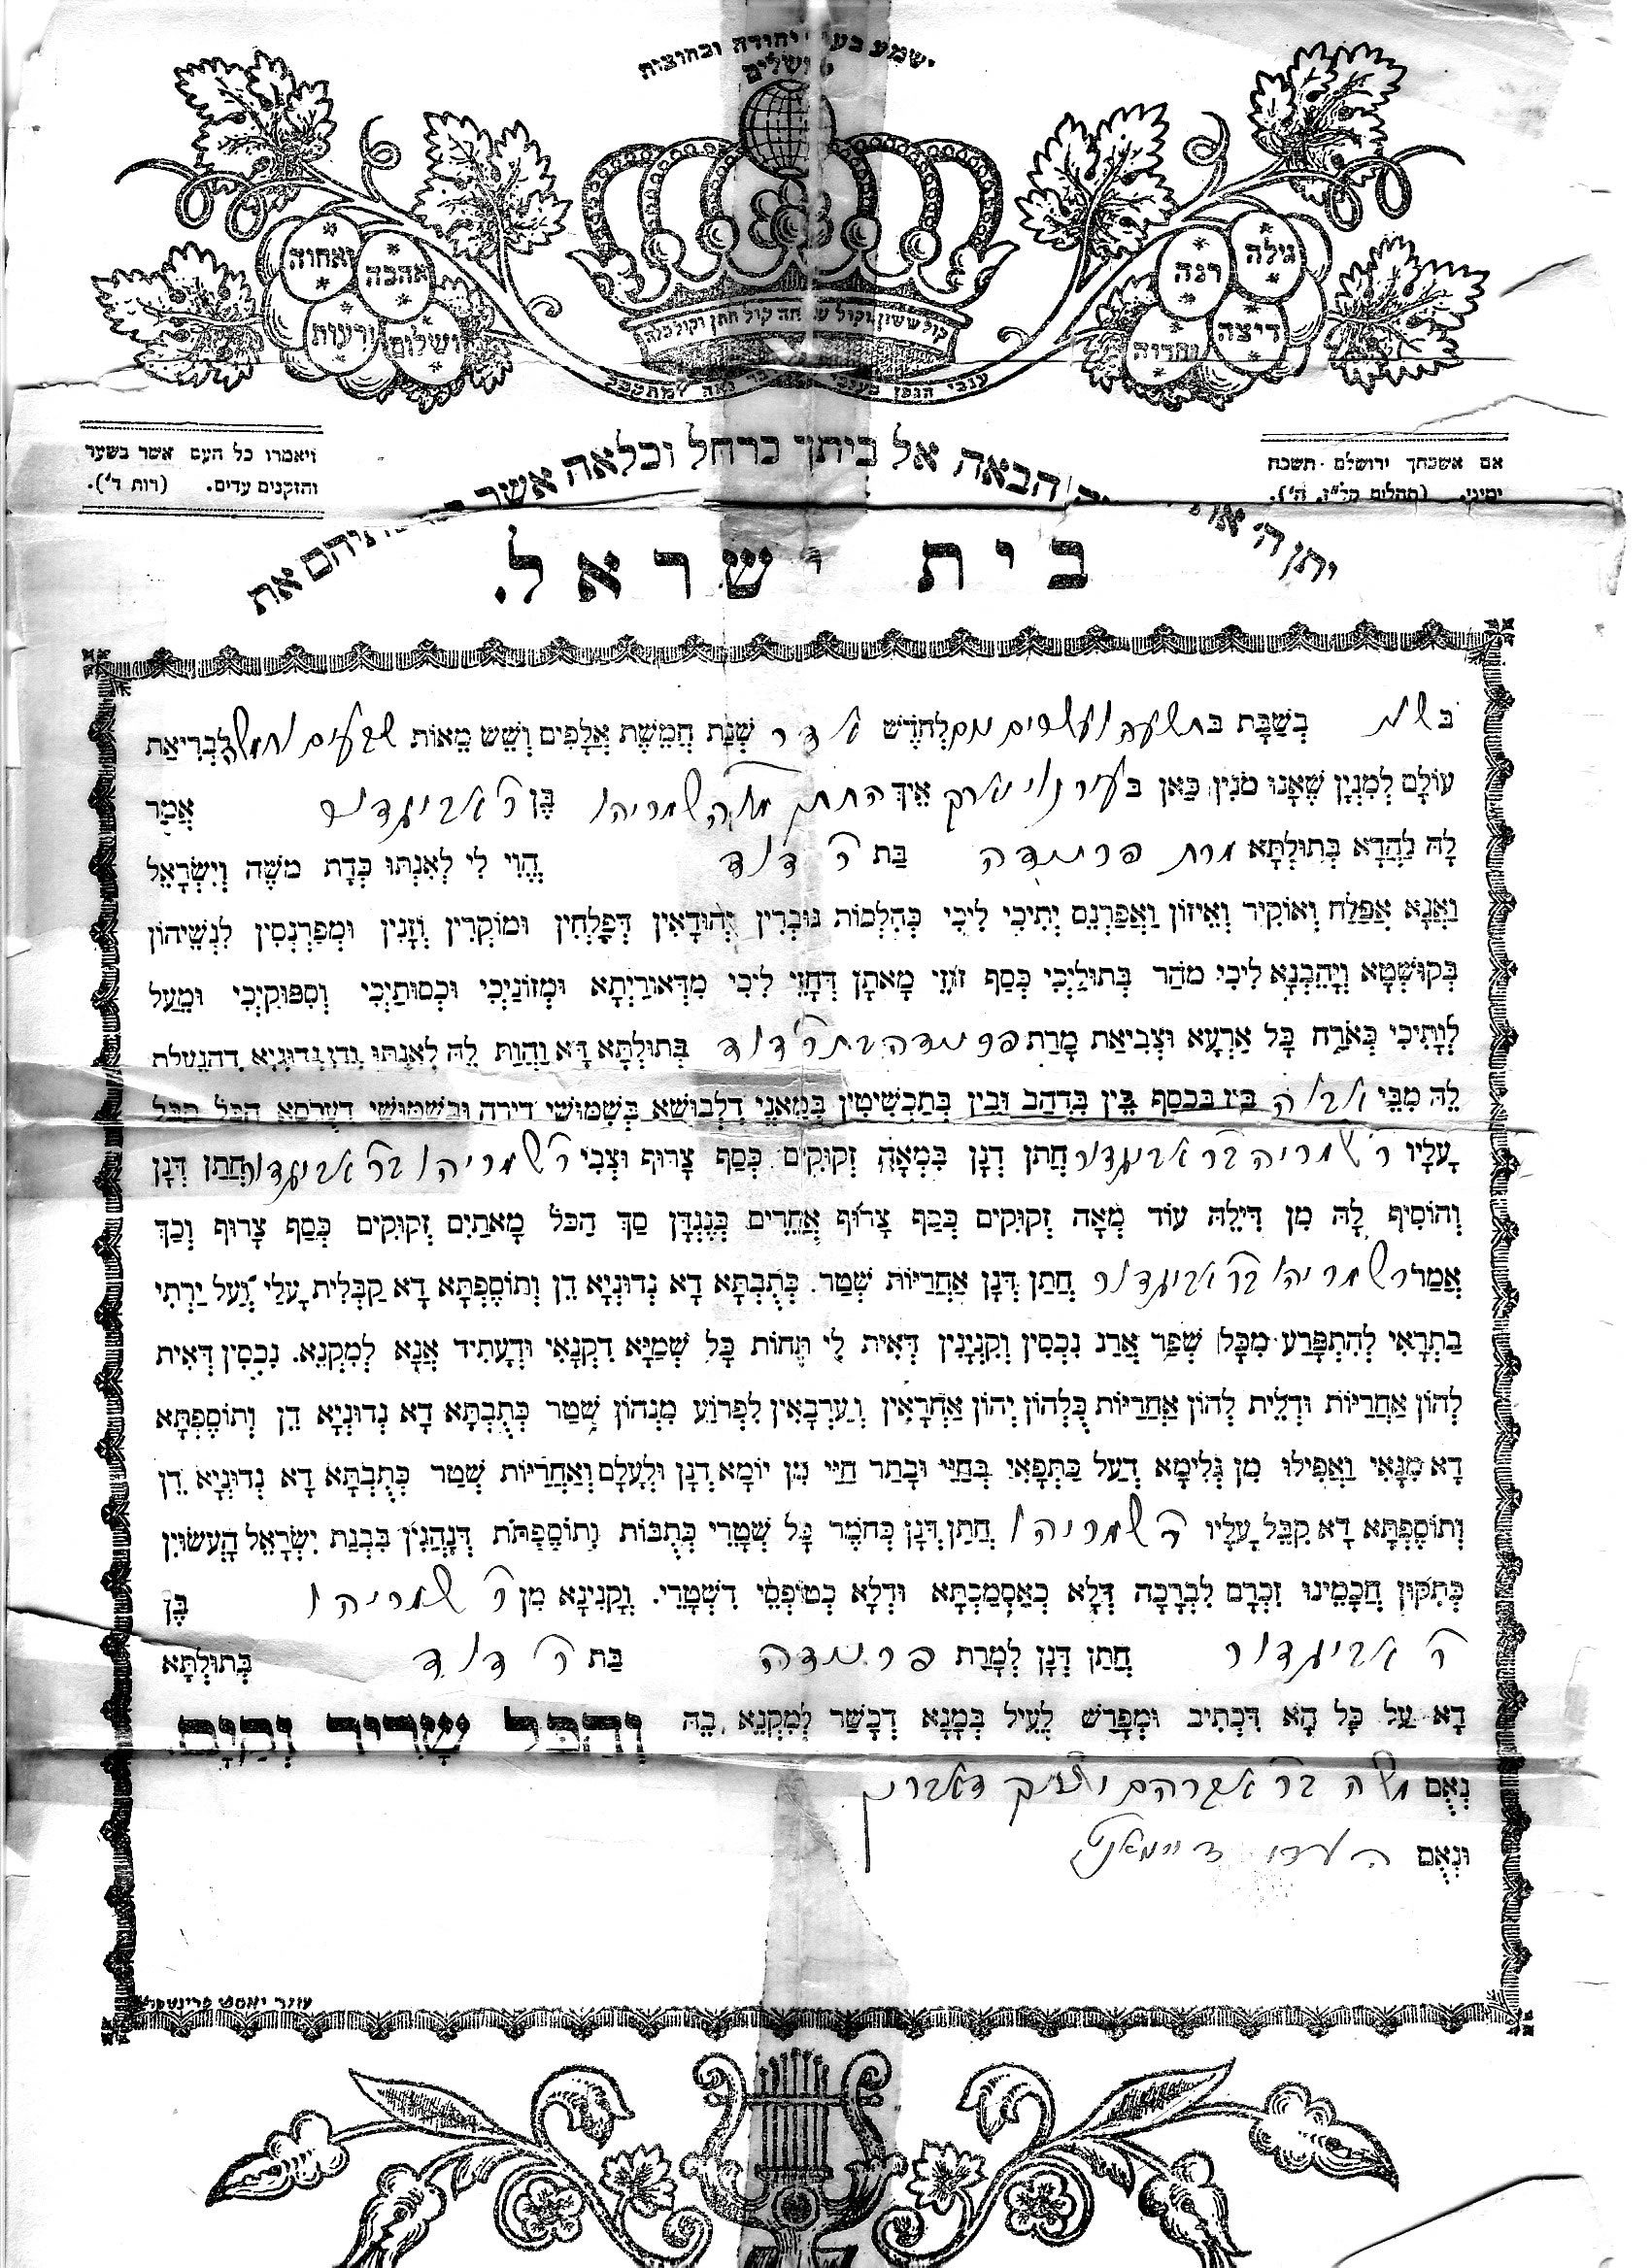 ישמע בערי יהודה ובחוצות
ירושלים
ואחוה אהבה ורעות ושלום
גילה רנה דיצה וחדוה
קול ששון וקול שמחה קול חתן וקול כלה
ענבי הגפן בענבי דבר נאה ומתקבל
אם אשכחך ירושלם תשכח
ימיני. (תהלים קל״ז, ה׳).
ויאמרו כל העם אשר בשער
והזקנים עדים. (רות ד׳).
יתן ה׳ את הבאה אל ביתך כרחל וכלאה אשר שתיהם את
בית ישראל.
בְּשַׁבָּת בתשעה ועשרים יום לְחֹדֶשׁ אדר שְׁנַת חֲמֵשֶׁת אֲלָפִים וְשֵׁשׁ מֵאוֹת שבעים וחמש לִבְרִיאַת
עוֹלָם לְמִנְיָן שֶׁאָנוּ מוֹנִין כַּאן בעיר נויארק אֵיךְ החתן שמריהו בֶּן ר׳ אביגדור אֲמַר
לָהּ לַהֲדָא בְּתוּלְתָּא מרת פרומה בַּת ר׳ דוד הֱוִי לִי לְאִנְתּוּ כְּדַת מֹשֶׁה וְיִשְׂרָאֵל
וַאֲנָא אֶפְלַח וְאוֹקִיר וְאֵיזוֹן וַאֲפַרְנֵס יָתִיכִי לִיכִי כְּהִלְכוֹת גּוּבְרִין יְהוּדָאִין דְּפָלְחִין וּמוֹקְרִין וְזָנִין וּמְפַרְנְסִין לִנְשֵׁיהוֹן
בְּקוּשְׁטָא וְיָהֵבְנָא לִיכִי מֹהַר בְּתוּלַיְכִי כְּסַף זוּזֵי מָאתָן דְּחָזֵי לִיכִי מִדְּאוֹרַיְתָא וּמְזוֹנַיְכִי וּכְסוּתַיְכִי וְסִפּוּקַיְכִי וּמֵעַל
לְוָתִיכִי כְּאֹרַח כָּל אַרְעָא וּצְבִיאַת מָרַת פרומה בת ר׳ דוד בְּתוּלְתָּא דָא וַהֲוַת לֵהּ לְאִנְתּוּ וְדֵן נְדוּנְיָא דְהַנְעֵלַת
לֵהּ מִבֵּי אביה בֵּין בִּכְסַף בֵּין בִּדְהַב וּבֵין בְּתַכְשִׁיטִין בְּמָאנֵי דִלְבוּשָׁא בְּשִׁמּוּשֵׁי דִירָה וּבְשִׁמּוּשֵׁי דְעַרְסָא הַכֹּל קִבֵּל
עָלָיו ר׳ שמריה בר אביגדור חֲתַן דְּנָן בִּמְאָה זְקוּקִים כֶּסֶף צָרוּף וּצְבִי ר׳ שמריהו בר אביגדור חֲתַן דְּנָן
וְהוֹסִיף לָהּ מִן דִּילֵהּ עוֹד מֵאָה זְקוּקִים כֶּסֶף צָרוּף אֲחֵרִים כְּנֶגְדָּן סַךְ הַכֹּל מָאתַיִם זְקוּקִים כֶּסֶף צָרוּף וְכַךְ
אֲמַר ר׳ שמריהו בר אביגדור חֲתַן דְּנָן אַחֲרָיוּת שְׁטַר כְּתֻבְתָּא דָא נְדוּנְיָא דֵן וְתוֹסֶפְתָּא דָא קַבֵּלִית עָלַי וְעַל יַרְתִי
בַתְרָאִי לְהִתְפָּרַע מִכָּל שְׁפַר אֲרַג נִכְסִין וְקִנְיָנִין דְּאִית לִי תְּחוֹת כָּל שְׁמַיָּא דִקְנָאִי וּדְעָתִיד אֲנָא לְמִקְנֵא. נִכְסִין דְּאִית
לְהוֹן אַחֲרָיוּת וּדְלֵית לְהוֹן אַחֲרָיוּת כֻּלְּהוֹן יְהוֹן אַחְרָאִין וְעַרְבָאִין לִפְרוֹעַ מִנְּהוֹן שְׁטַר כְּתֻבְתָּא דָא נְדוּנְיָא דֵן וְתוֹסֶפְתָּא
דָא מִנָּאִי וַאֲפִילוּ מִן גְּלִימָא דְעַל כַּתְפָאִי בְּחַיַּי וּבָתַר חַיַּי מִן יוֹמָא דְנָן וּלְעָלַם וְאַחֲרָיוּת שְׁטַר כְּתֻבְתָּא דָא נְדוּנְיָא דֵן
וְתוֹסֶפְתָּא דָא קִבֵּל עָלָיו ר׳ שמריהו חֲתַן דְּנָן כְּחֹמֶר כָּל שְׁטָרֵי כְּתֻבּוֹת וְתוֹסֶפְתּוֹת דְּנָהֲגִין בִּבְנַת יִשְׂרָאֵל הָעֲשׂוּיִן
כְּתִקּוּן חֲכָמֵינוּ זִכְרָם לִבְרָכָה דְּלָא כְאַסְמַכְתָּא וּדְלָא כְטוֹפְסֵי דִשְׁטָרֵי. וְקָנִינָא מִן ר׳ שמריהו בֶּן
ר׳ אביגדור חֲתַן דְּנָן לְמָרַת פרומה בַּת ר׳ דוד בְּתוּלְתָּא
דָא עַל כָּל הָא דִּכְתִיב וּמְפָרַשׁ לְעֵיל בְּמָנָא דְכָשַׁר לְמִקְנֵא בֵהּ וְהַכֹּל שָׁרִיר וְקַיָּם.
נְאֻם משה בר אברהם יצחק
וּנְאֻם